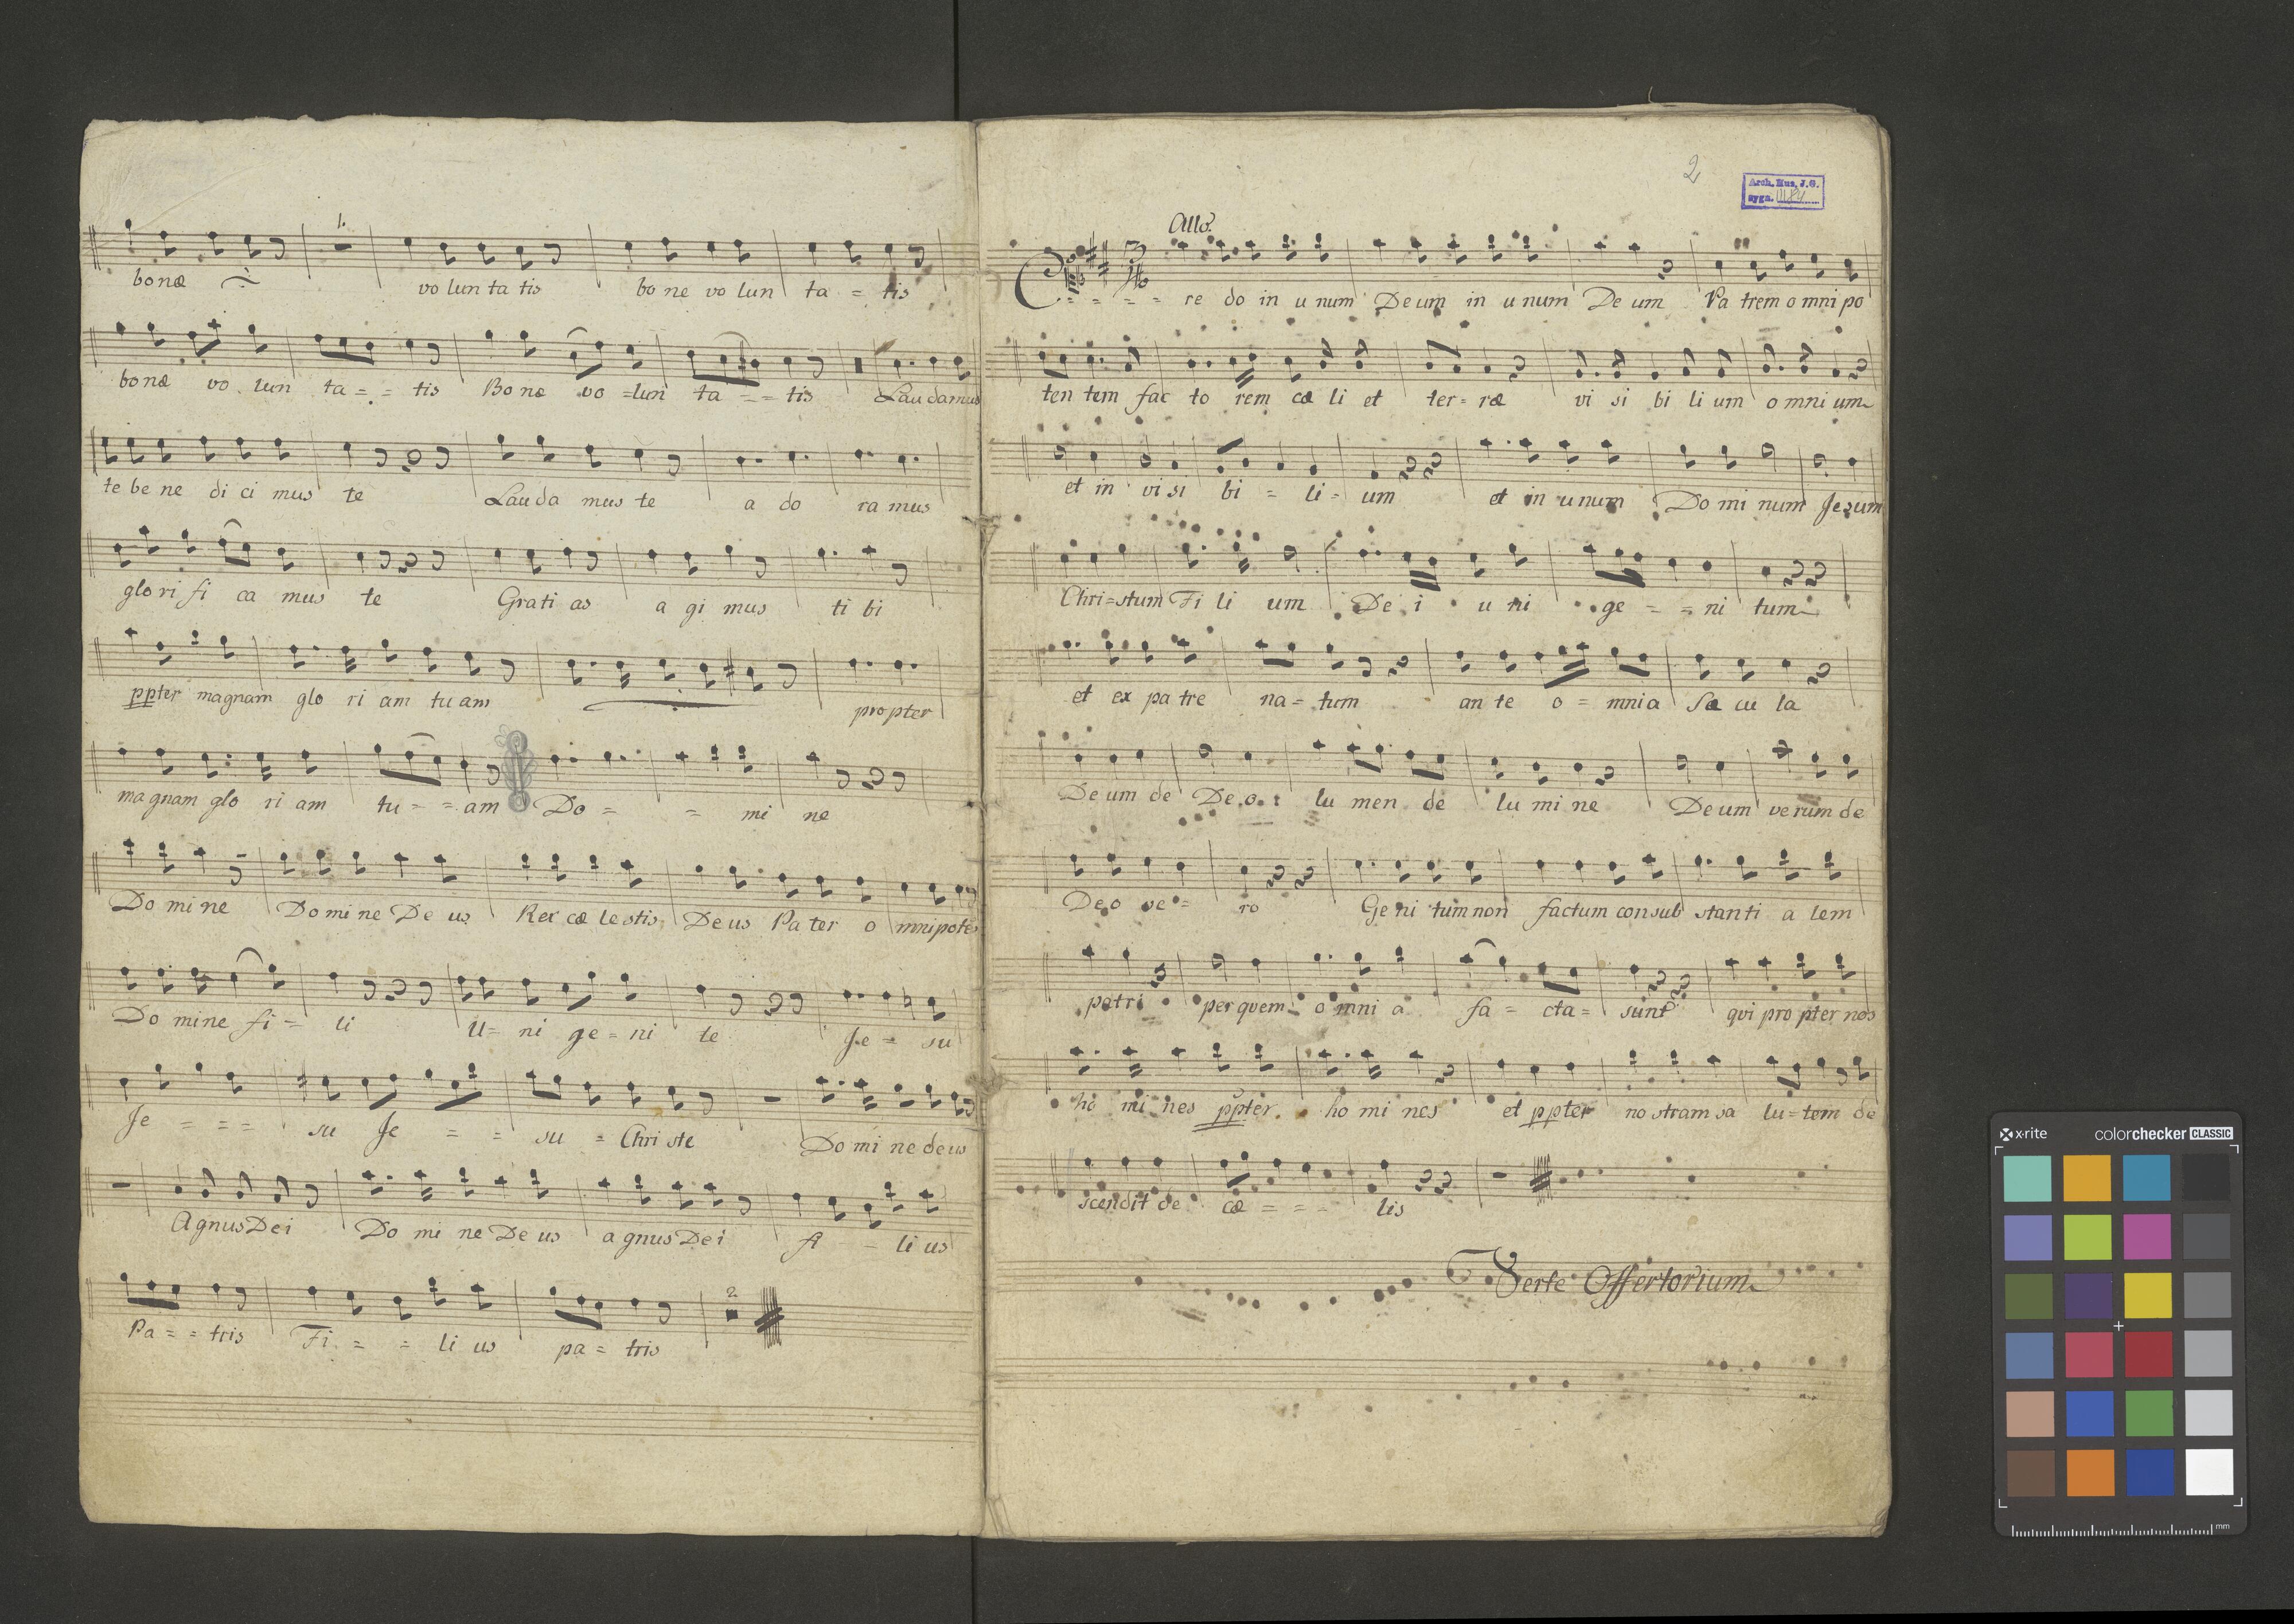 1.
bonæ vo lun ta tis bo ne vo lun ta = tis
bo næ vo lun ta = = tis Bo næ vo = lun ta = = tis Lau da mus
te be ne di ci mus te Lau da mus te a do ra mus
glo ri fi ca mus te Grati as a gi mus ti bi
ppter magnam glo ri am tu am propter
magnam glo ri am tu = = am Do = = mi ne
Do mi ne Do mi ne De us Rex cæ lestis De us Pa ter o mnipotēs
Do mine fi = li U = ni ge = ni te Je = su
Je = = = su Je = = su = Chri ste Do mi ne deus
Agnus Dei Do mi ne De us a gnus Dei fi = li us
Pa = = tris Fi = = li us pa = tris
2
2
Arch. Mus. J.G.
sygn.
Allo.
C = = = = re do in u num De um in u num De um Pa trem o mni po
ten tem fac to rem cæ li et ter = ræ vi si bi li um o mni um
et in vi si bi = li = um et in unum Do mi num Jesum
Chri = stum Fi li um De i u ni ge = = ni tum
et ex pa tre na = tum an te o = mnia Sæ cu la
De um de De o lu men de lu mi ne De um verum de
De o ve = ro Ge ni tum non factum consub stanti a lem
patri per quem o mni a fa = cta = sunt qvi pro pter nos
ho mi nes ppter ho mi nes et ppter nostram sa lu = tem de
scendit de cæ = = = lis
Verte Offertorium
x-rite colorchecker CLASSIC
mm